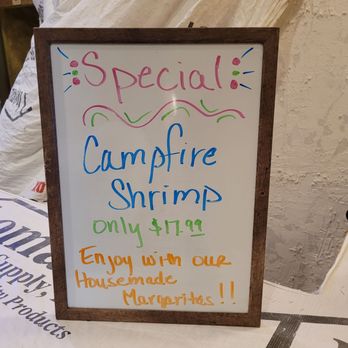 Special
Campfire
Shrimp
only $17.99
Enjoy with our
Housemade
Margaritas!!
Supply,
Products